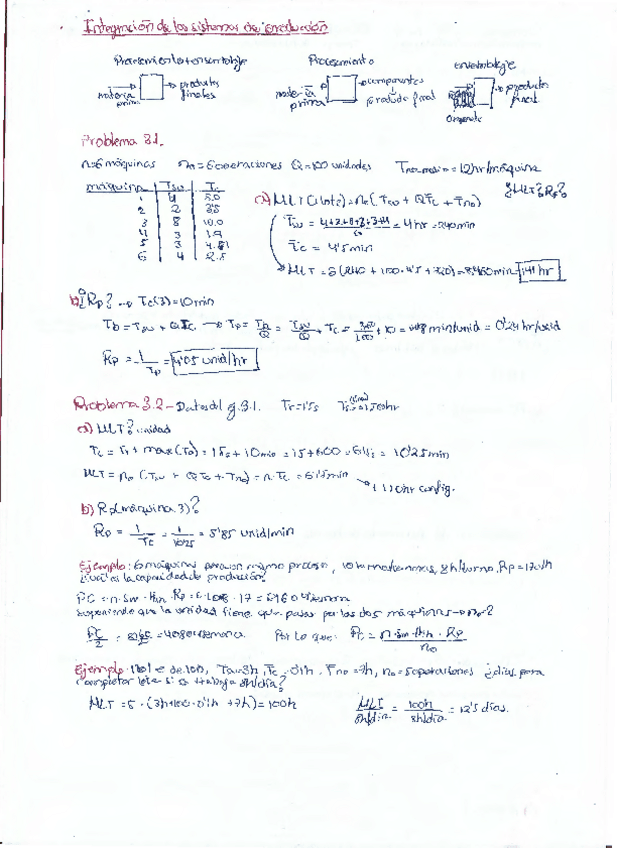 Integración de los sistemas de producción
Procesamiento + ensamblaje
Procesamiento
ensamblaje
materia prima
productos finales
materia prima
componentes
producto final
producto final
Problema 3.1.
n=6 máquinas no=6 operaciones Q=100 unidades Tno = 12hr/máquina
¿MLT? ¿Rp?
máquina Tsu Tc
1 4 5.0
2 2 3.5
3 8 10.0
4 3 1.9
5 3 4.1
6 4 2.5
a) MLT (1 lote) = no (Tsu + QTc + Tno)
Tsu = 4+2+8+3+3+4 / 6 = 4 hr = 240 min
Tc = 4'5 min
MLT = 6 (240 + 100 · 4'5 + 720) = 8460 min = 141 hr
b) ¿Rp? → Tc(3) = 10 min
Tb = Tsu + QTc → Tp = Tb/Q = Tsu/Q + Tc = /100 + 10 = min/unid = 0'24 hr/unid
Rp = 1/Tp = 4'05 unid/hr
Problema 3.2 - Datos del ej. 3.1. Tr = 15s
a) MLT? unidad
Tc = Tr + max (To) = 15s + 10min = 15 + 600 = 615s = 10'25 min
MLT = no (Tsu + QTc + Tno) = n · Tc = 61'5 min
config.
b) Rp (máquina 3)?
Rp = 1/Tc = 1/10'25 = 5'85 unid/min
Ejemplo: 6 máquinas para un mismo proceso, 10 turnos/semana, 8h/turno, Rp = 17u/h
¿cuál es la capacidad de producción?
PC = n · Sw · Hsh · Rp = 6 · 10 · 8 · 17 = 8160 u/semana
Suponiendo que la unidad tiene que pasar por las dos máquinas → no?
PC/2 = = 4080 u/semana. Por lo que: Pc = n · Sw · Hsh · Rp / no
Ejemplo: 1 lote de 100, Tsu = 3h, Tc = 0'1h Tno = 7h, no = 5 operaciones ¿días para
completar lote si se trabaja 8h/día?
MLT = 5 · (3h + 100 · 0'1h + 7h) = 100h
MLT / 8h/día = 100h / 8h/día = 12'5 días.